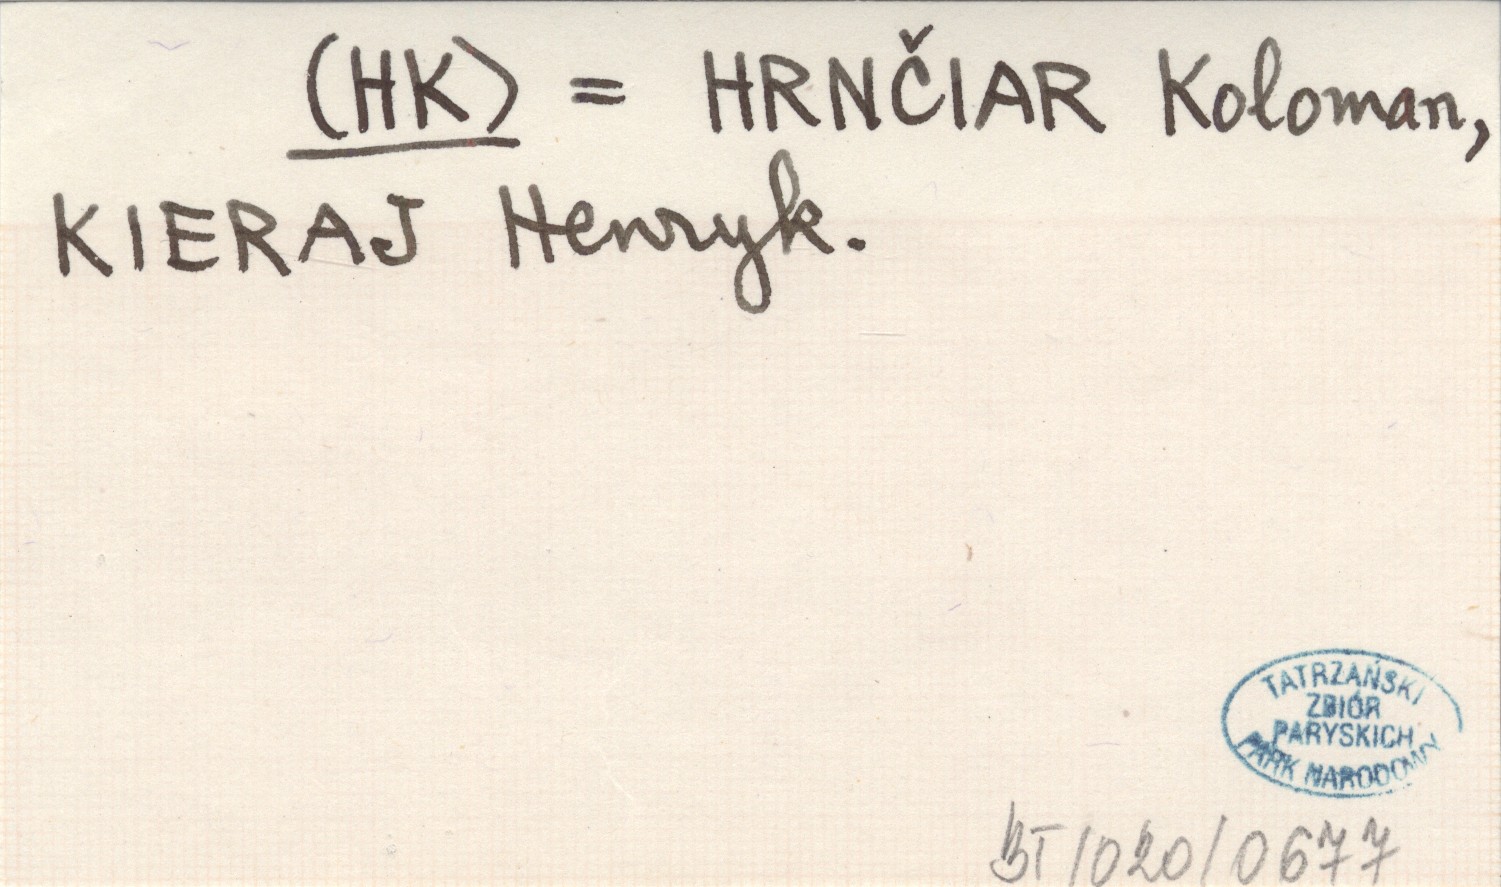 (HK) = HRNČIAR Koloman,
KIERAJ Henryk.
TATRZAŃSKI
ZBIÓR
PARYSKICH
PARK NARODOWY
BT/020/0677